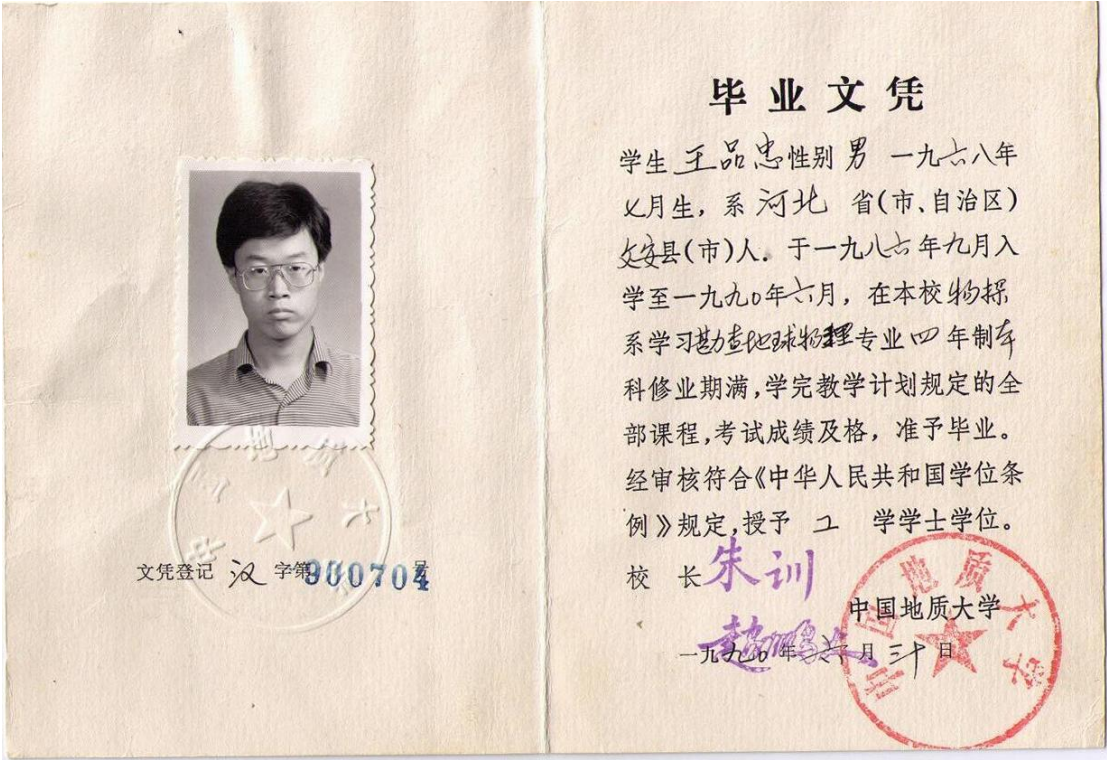 文凭登记 汉 字第900704号
毕业文凭
学生 王品忠 性别 男 一九六八年
七月生，系 河北 省(市、自治区)
文安县(市)人。于一九八六年九月入
学至一九九〇年六月，在本校物探
系学习勘查地球物理专业四年制本
科修业期满，学完教学计划规定的全
部课程，考试成绩及格，准予毕业。
经审核符合《中华人民共和国学位条
例》规定，授予 工 学学士学位。
校 长 朱训
赵鹏大
中国地质大学
一九九〇年六月三十日
中国地质大学